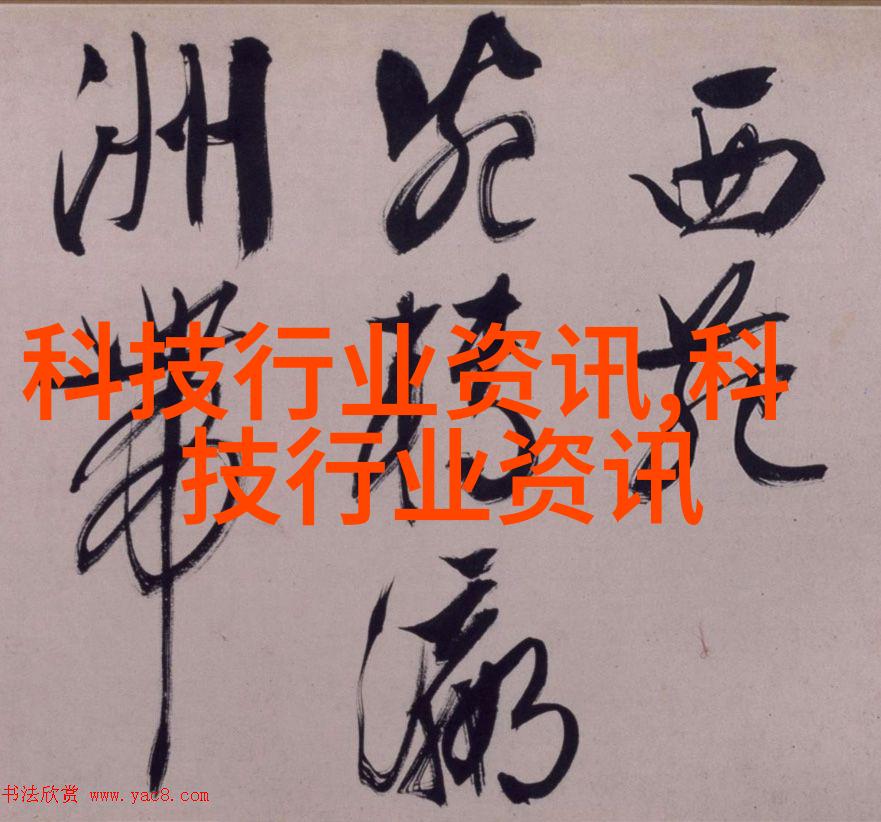 西苑
瀛
洲
科技行业资讯,科
技行业资讯
书法欣赏 www.yac8.com